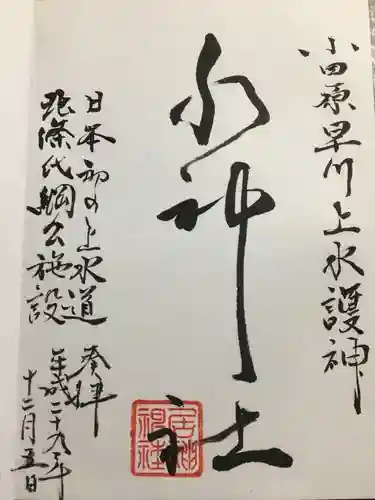 小田原早川上水護神
水神社
日本初の上水道
北條氏綱公施設
奉拝
平成二十九年
十二月五日
居神神社